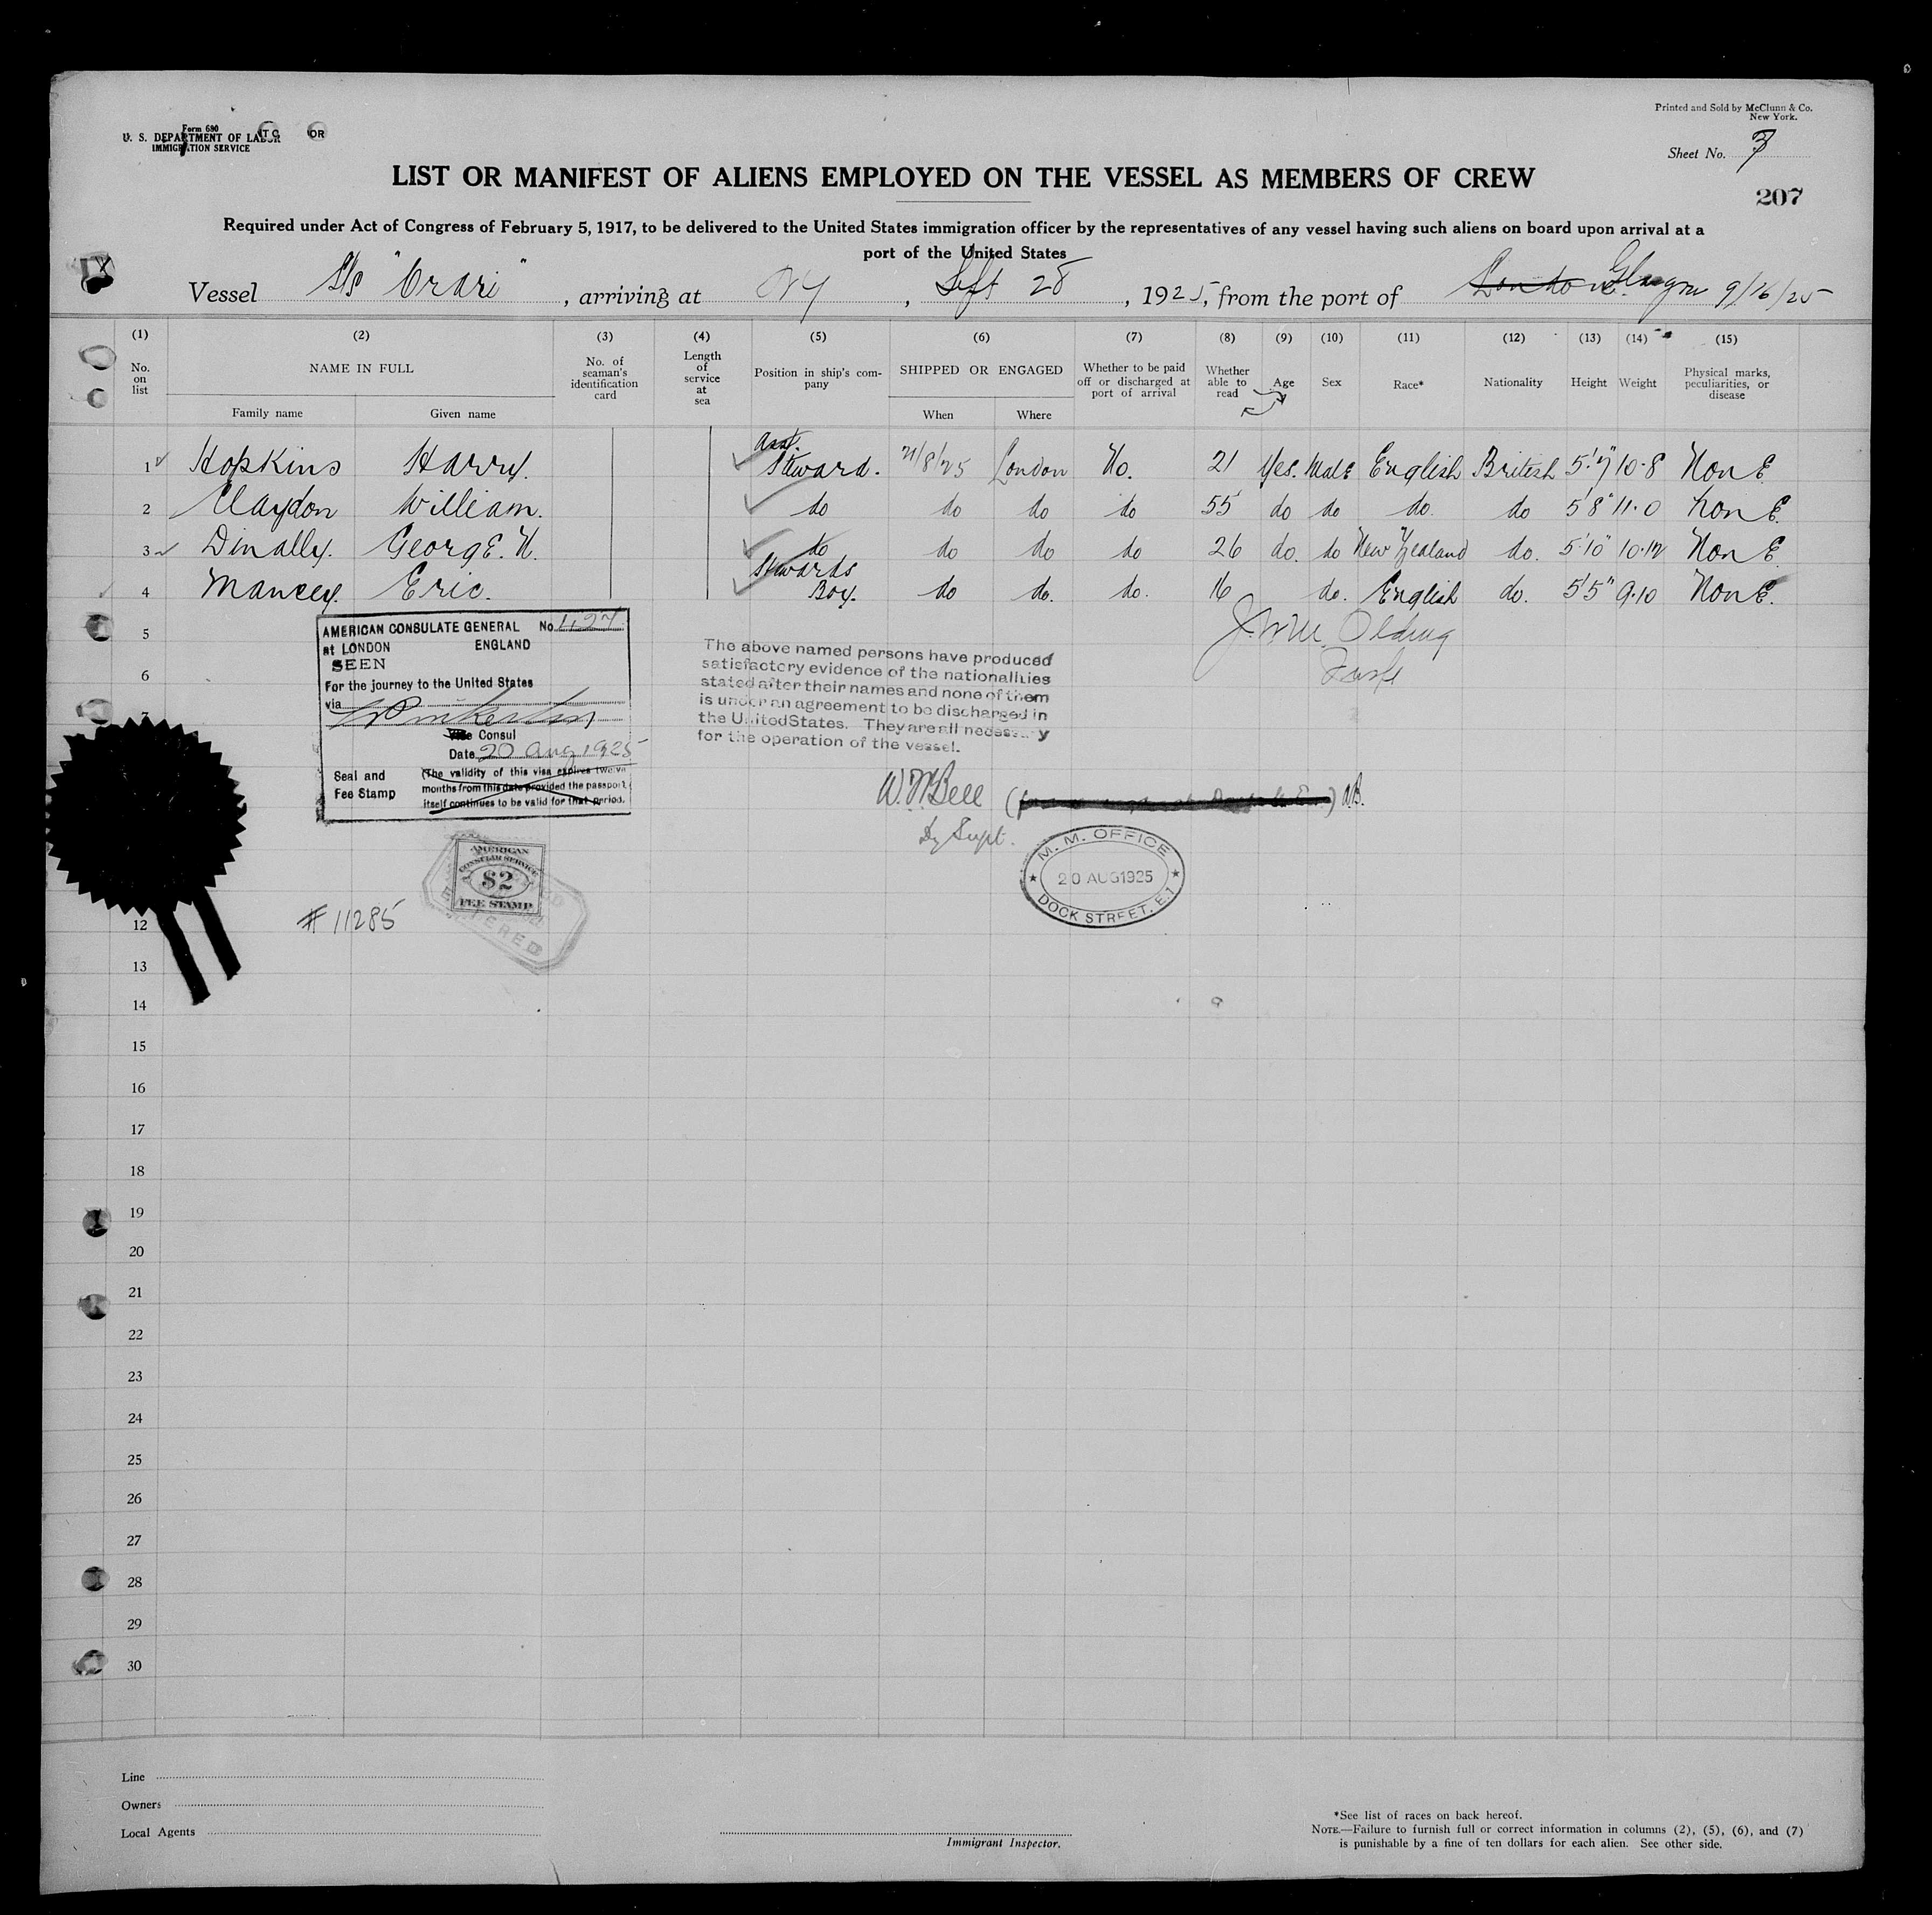 Form 680
U. S. DEPARTMENT OF LABOR
IMMIGRATION SERVICE
Printed and Sold by McClunn & Co.
New York.
Sheet No.
207
LIST OR MANIFEST OF ALIENS EMPLOYED ON THE VESSEL AS MEMBERS OF CREW
Required under Act of Congress of February 5, 1917, to be delivered to the United States immigration officer by the representatives of any vessel having such aliens on board upon arrival at a
port of the United States
Vessel S/S "Orari", arriving at NY, Sept 28, 1925, from the port of London Glasgow 9/16/25
(1) (2) (3) (4) (5) (6) (7) (8) (9) (10) (11) (12) (13) (14) (15)
No. on list NAME IN FULL No. of seaman's identification card Length of service at sea Position in ship's company SHIPPED OR ENGAGED Whether to be paid off or discharged at port of arrival Whether able to read Age Sex Race* Nationality Height Weight Physical marks, peculiarities, or disease
Family name Given name When Where
1 Hopkins Harry. Asst. Steward. 21/8/25 London No. 21 Yes. Male English British 5'7" 10-8 NonE
2 Claydon William. do do do do 55 do do do. do 5'8" 11-0 NonE.
3 Dinally. GeorgE. N. do do do do 26 do. do New Zealand do. 5'10" 10-12 NonE
4 Mancey. Eric. Stewards Boy. do do. do. 16 do. English do. 5'5" 9-10 NonE.
5
6
7
AMERICAN CONSULATE GENERAL No.
at LONDON ENGLAND
SEEN
For the journey to the United States
via
Vice Consul
Date 20 Aug 1925
Seal and Fee Stamp
(The validity of this visa expires twelve
months from this date provided the passport
itself continues to be valid for that period.
The above named persons have produced
satisfactory evidence of the nationalities
stated after their names and none of them
is under an agreement to be discharged in
the United States. They are all necessary
for the operation of the vessel.
W. Bell
Dy Supt.
M. M. OFFICE
20 AUG 1925
DOCK STREET. E.1
AMERICAN
CONSULAR SERVICE
$2
FEE STAMP
# 11285
12
13
14
15
16
17
18
19
20
21
22
23
24
25
26
27
28
29
30
Line
Owners
Local Agents
Immigrant Inspector.
*See list of races on back hereof.
NOTE.—Failure to furnish full or correct information in columns (2), (5), (6), and (7)
is punishable by a fine of ten dollars for each alien. See other side.